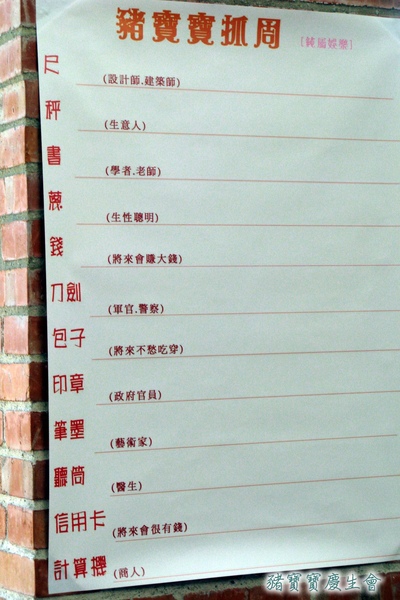 豬寶寶抓周 [純屬娛樂]
尺 (設計師.建築師)
秤 (生意人)
書 (學者.老師)
蔥 (生性聰明)
錢 (將來會賺大錢)
刀劍 (軍官.警察)
包子 (將來不愁吃穿)
印章 (政府官員)
筆墨 (藝術家)
聽筒 (醫生)
信用卡 (將來會很有錢)
計算機 (商人)
豬寶寶慶生會